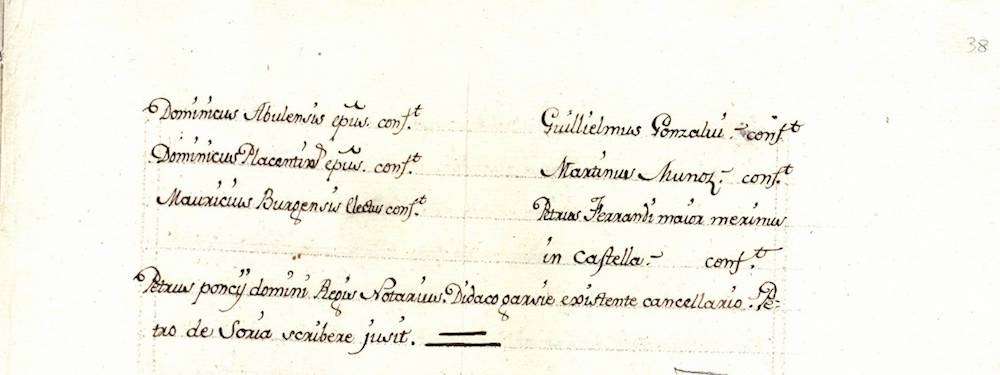 38
Dominicus Abulensis epus. conf.t
Dominicus Placentin9 epus. conf.t
Mauricius Burgensis Electus conf.t
Guillielmus Gonzalui.- conf.t
Martinus Munoz- conf.t
Petrus Ferrandi maior merinus
in Castella- conf.t
Petrus poncij domini Regis Notarius. Didaco garsie existente cancellario. Pe-
tro de Soria scribere jusit.